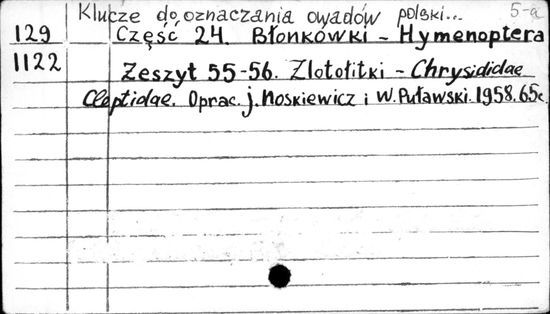 Klucze do oznaczania owadów polski... 5-a
129 Część 24. Błonkówki - Hymenoptera
1122 Zeszyt 55-56. Zlotolitki - Chrysididae
Cleptidae. Oprac. j. Noskiewicz i W. Puławski. 1958. 65c.